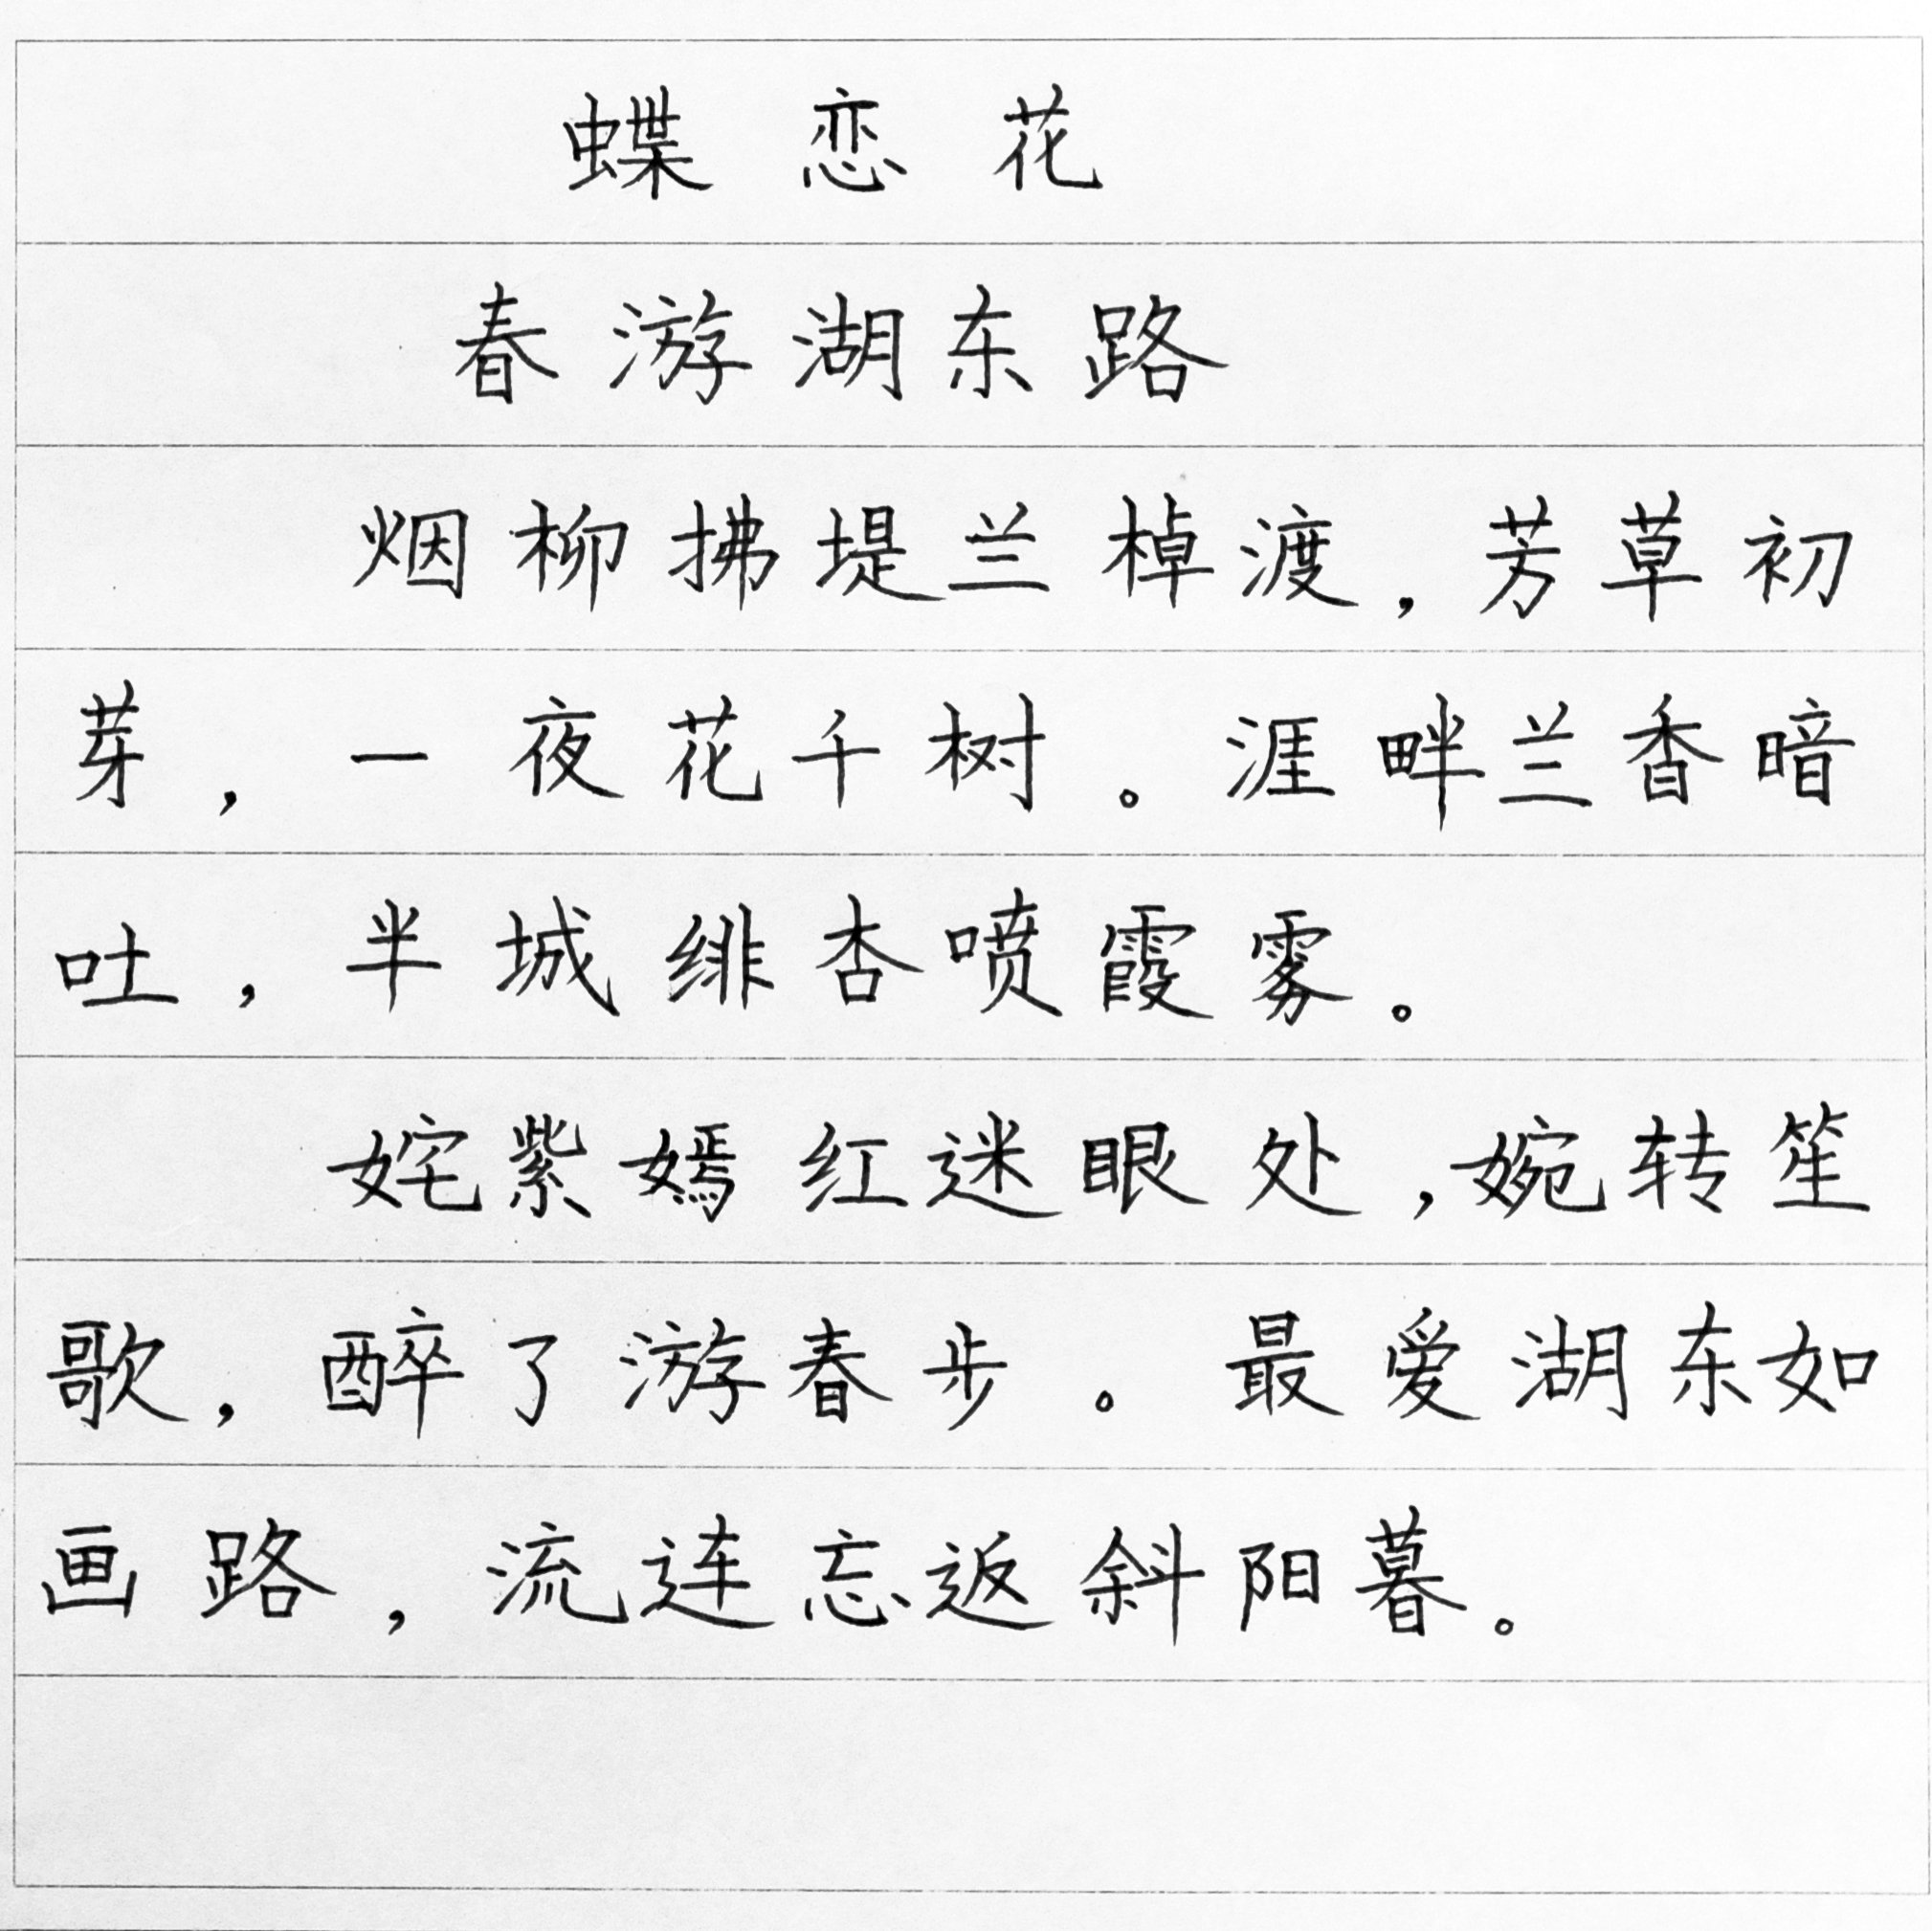 蝶恋花
春游湖东路
烟柳拂堤兰棹渡，芳草初
芽，一夜花千树。涯畔兰香暗
吐，半城绯杏喷霞雾。
姹紫嫣红迷眼处，婉转笙
歌，醉了游春步。最爱湖东如
画路，流连忘返斜阳暮。